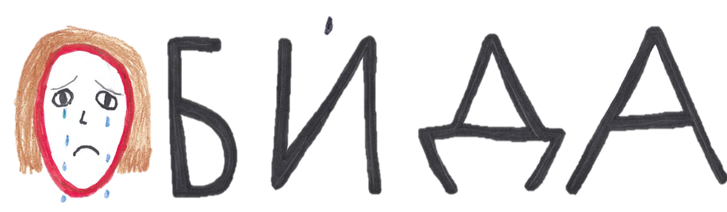 ОБИ́ДА